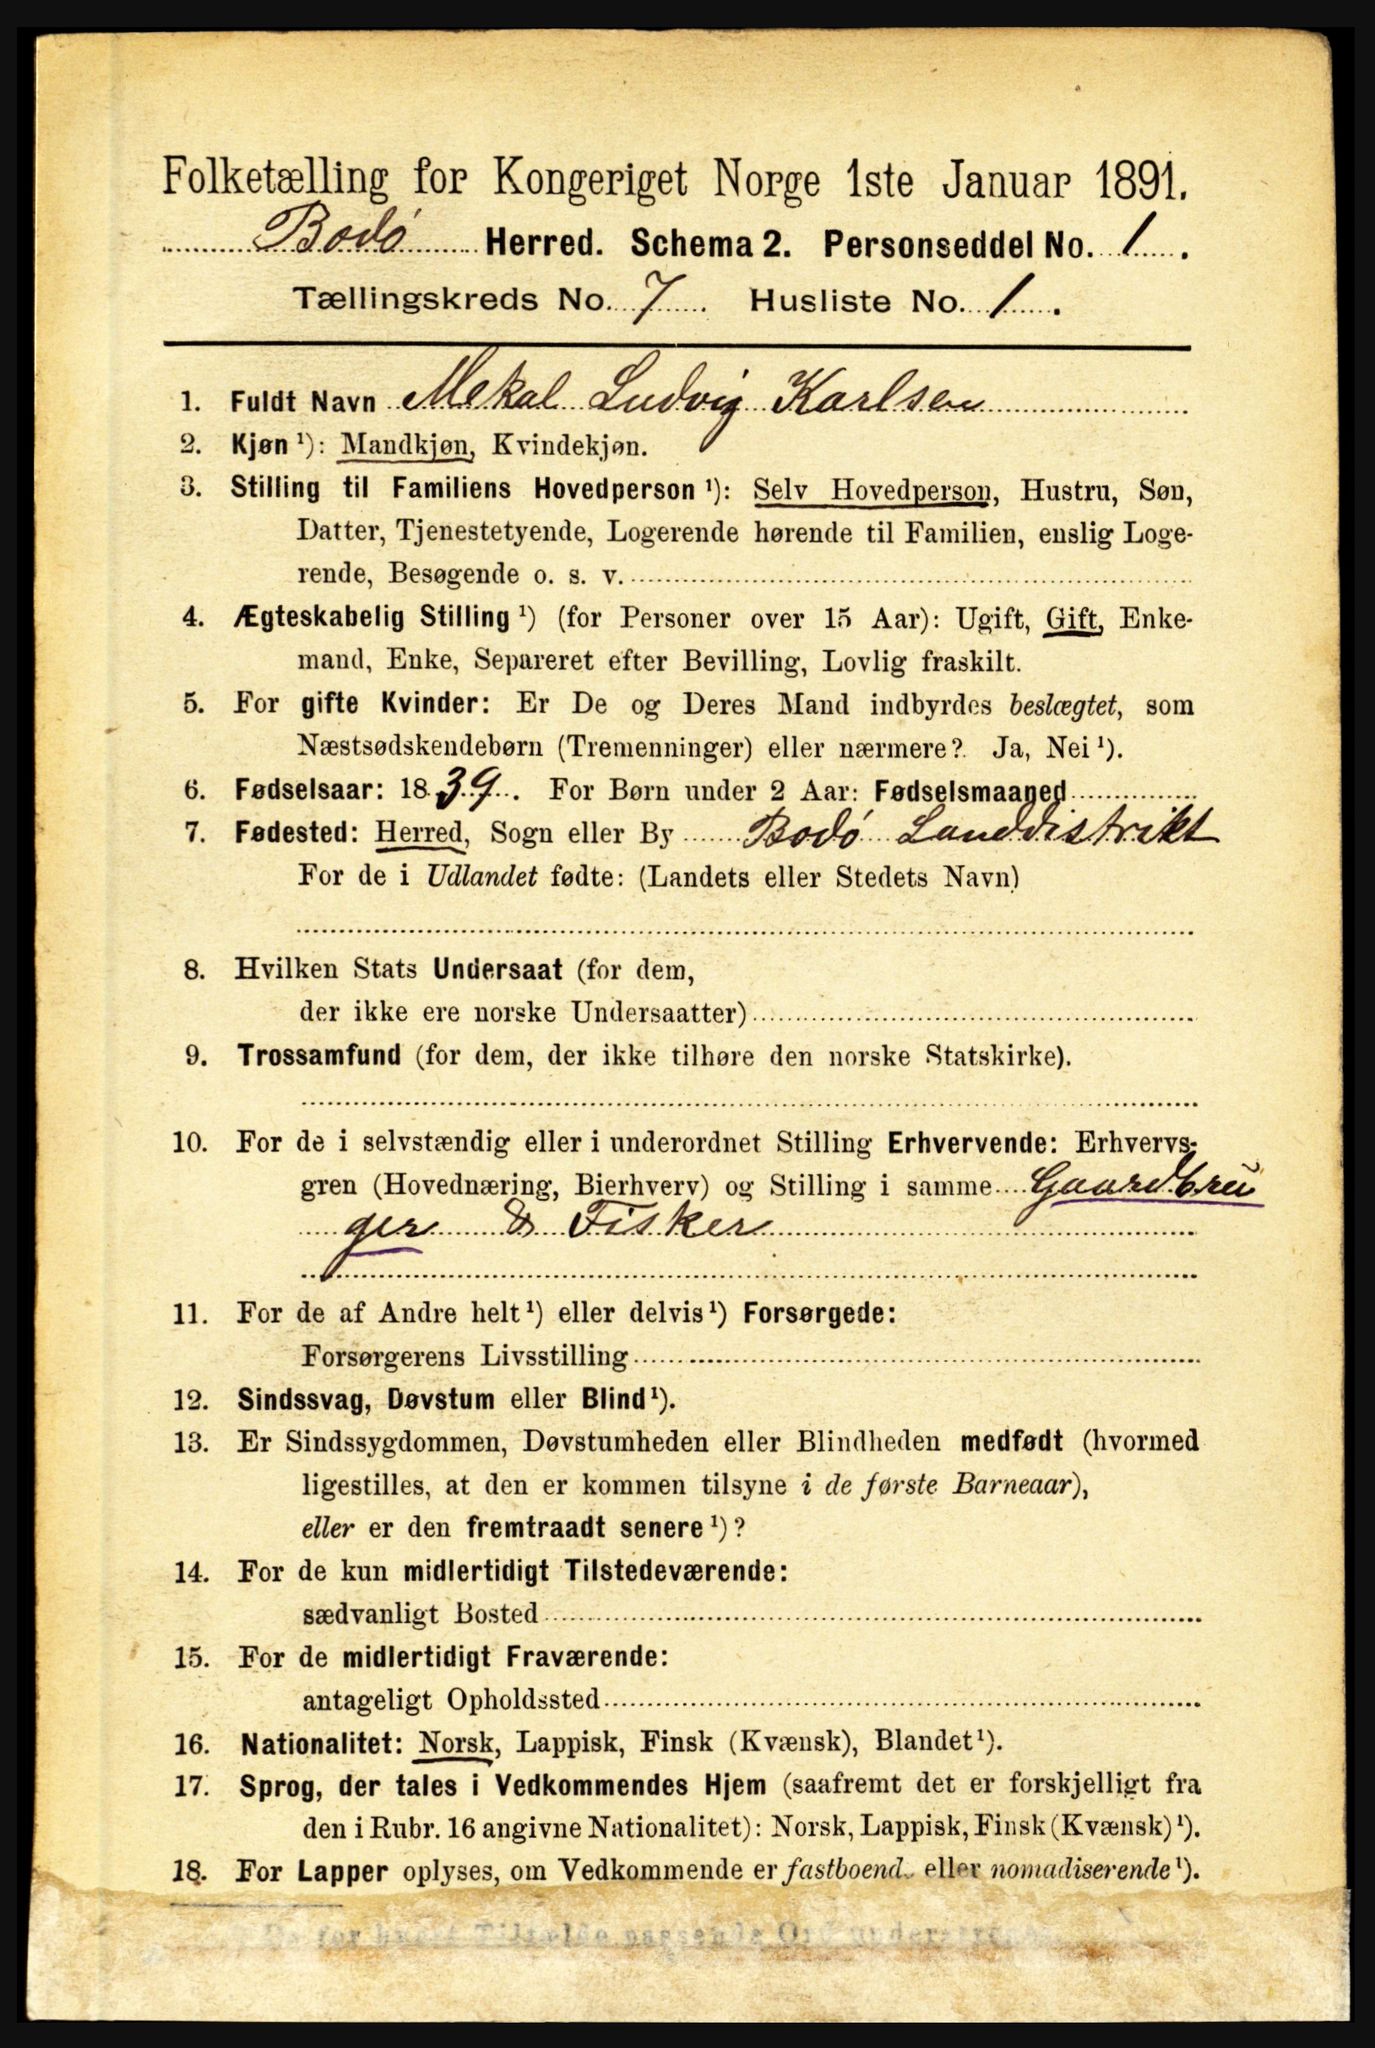 Folketælling for Kongeriget Norge 1ste Januar 1891.
Bodø Herred. Schema 2. Personseddel No. 1.
Tællingskreds No. 7 Husliste No. 1.
1. Fuldt Navn Mekal Ludvig Karlsen
2. Kjøn ¹): Mandkjøn, Kvindekjøn.
3. Stilling til Familiens Hovedperson ¹): Selv Hovedperson, Hustru, Søn,
Datter, Tjenestetyende, Logerende hørende til Familien, enslig Loge-
rende, Besøgende o. s. v.
4. Ægteskabelig Stilling ¹) (for Personer over 15 Aar): Ugift, Gift, Enke-
mand, Enke, Separeret efter Bevilling, Lovlig fraskilt.
5. For gifte Kvinder: Er De og Deres Mand indbyrdes beslægtet, som
Næstsødskendebørn (Tremenninger) eller nærmere? Ja, Nei ¹).
6. Fødselsaar: 1839. For Børn under 2 Aar: Fødselsmaaned
7. Fødested: Herred, Sogn eller By Bodø Landdistrikt
For de i Udlandet fødte: (Landets eller Stedets Navn)
8. Hvilken Stats Undersaat (for dem,
der ikke ere norske Undersaatter)
9. Trossamfund (for dem, der ikke tilhøre den norske Statskirke).
10. For de i selvstændig eller i underordnet Stilling Erhvervende: Erhvervs-
gren (Hovednæring, Bierhverv) og Stilling i samme Gaardbru
ger & Fisker
11. For de af Andre helt ¹) eller delvis ¹) Forsørgede:
Forsørgerens Livsstilling
12. Sindssvag, Døvstum eller Blind ¹).
13. Er Sindssygdommen, Døvstumheden eller Blindheden medfødt (hvormed
ligestilles, at den er kommen tilsyne i de første Barneaar),
eller er den fremtraadt senere ¹)?
14. For de kun midlertidigt Tilstedeværende:
sædvanligt Bosted
15. For de midlertidigt Fraværende:
antageligt Opholdssted
16. Nationalitet: Norsk, Lappisk, Finsk (Kvænsk), Blandet ¹).
17. Sprog, der tales i Vedkommendes Hjem (saafremt det er forskjelligt fra
den i Rubr. 16 angivne Nationalitet): Norsk, Lappisk, Finsk (Kvænsk) ¹).
18. For Lapper oplyses, om Vedkommende er fastboend. eller nomadiserende ¹).
De for hvert Tiltælde passende Ord